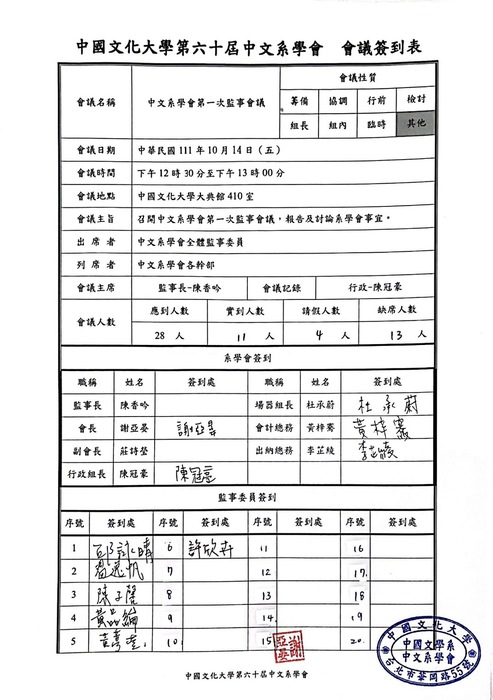 中國文化大學第六十屆中文系學會 會議簽到表
會議名稱 中文系學會第一次監事會議 會議性質
籌備 協調 行前 檢討
組長 組內 臨時 其他
會議日期 中華民國 111 年 10 月 14 日（五）
會議時間 下午 12 時 30 分至下午 13 時 00 分
會議地點 中國文化大學大典館 410 室
會議主旨 召開中文系學會第一次監事會議，報告及討論系學會事宜。
出席者 中文系學會全體監事委員
列席者 中文系學會各幹部
會議主席 監事長-陳香吟 會議記錄 行政-陳冠豪
會議人數 應到人數 實到人數 請假人數 缺席人數
28 人 11 人 4 人 13 人
系學會簽到
職稱 姓名 簽到處 職稱 姓名 簽到處
監事長 陳香吟 場器組長 杜承蔚 杜承蔚
會長 謝亞晏 謝亞晏 會計總務 黃梓騫 黃梓騫
副會長 莊詩瑩 出納總務 李芷綾 李芷綾
行政組長 陳冠豪 陳冠豪
監事委員簽到
序號 簽到處 序號 簽到處 序號 簽到處 序號 簽到處
1 6 許欣卉 11 16
2 7 12 17.
3 8 13 18
4 9 14. 19
5 10. 15 20.
中國文化大學
中國文學系
中文系學會
台北市華岡路55號
中國文化大學第六十屆中文系學會